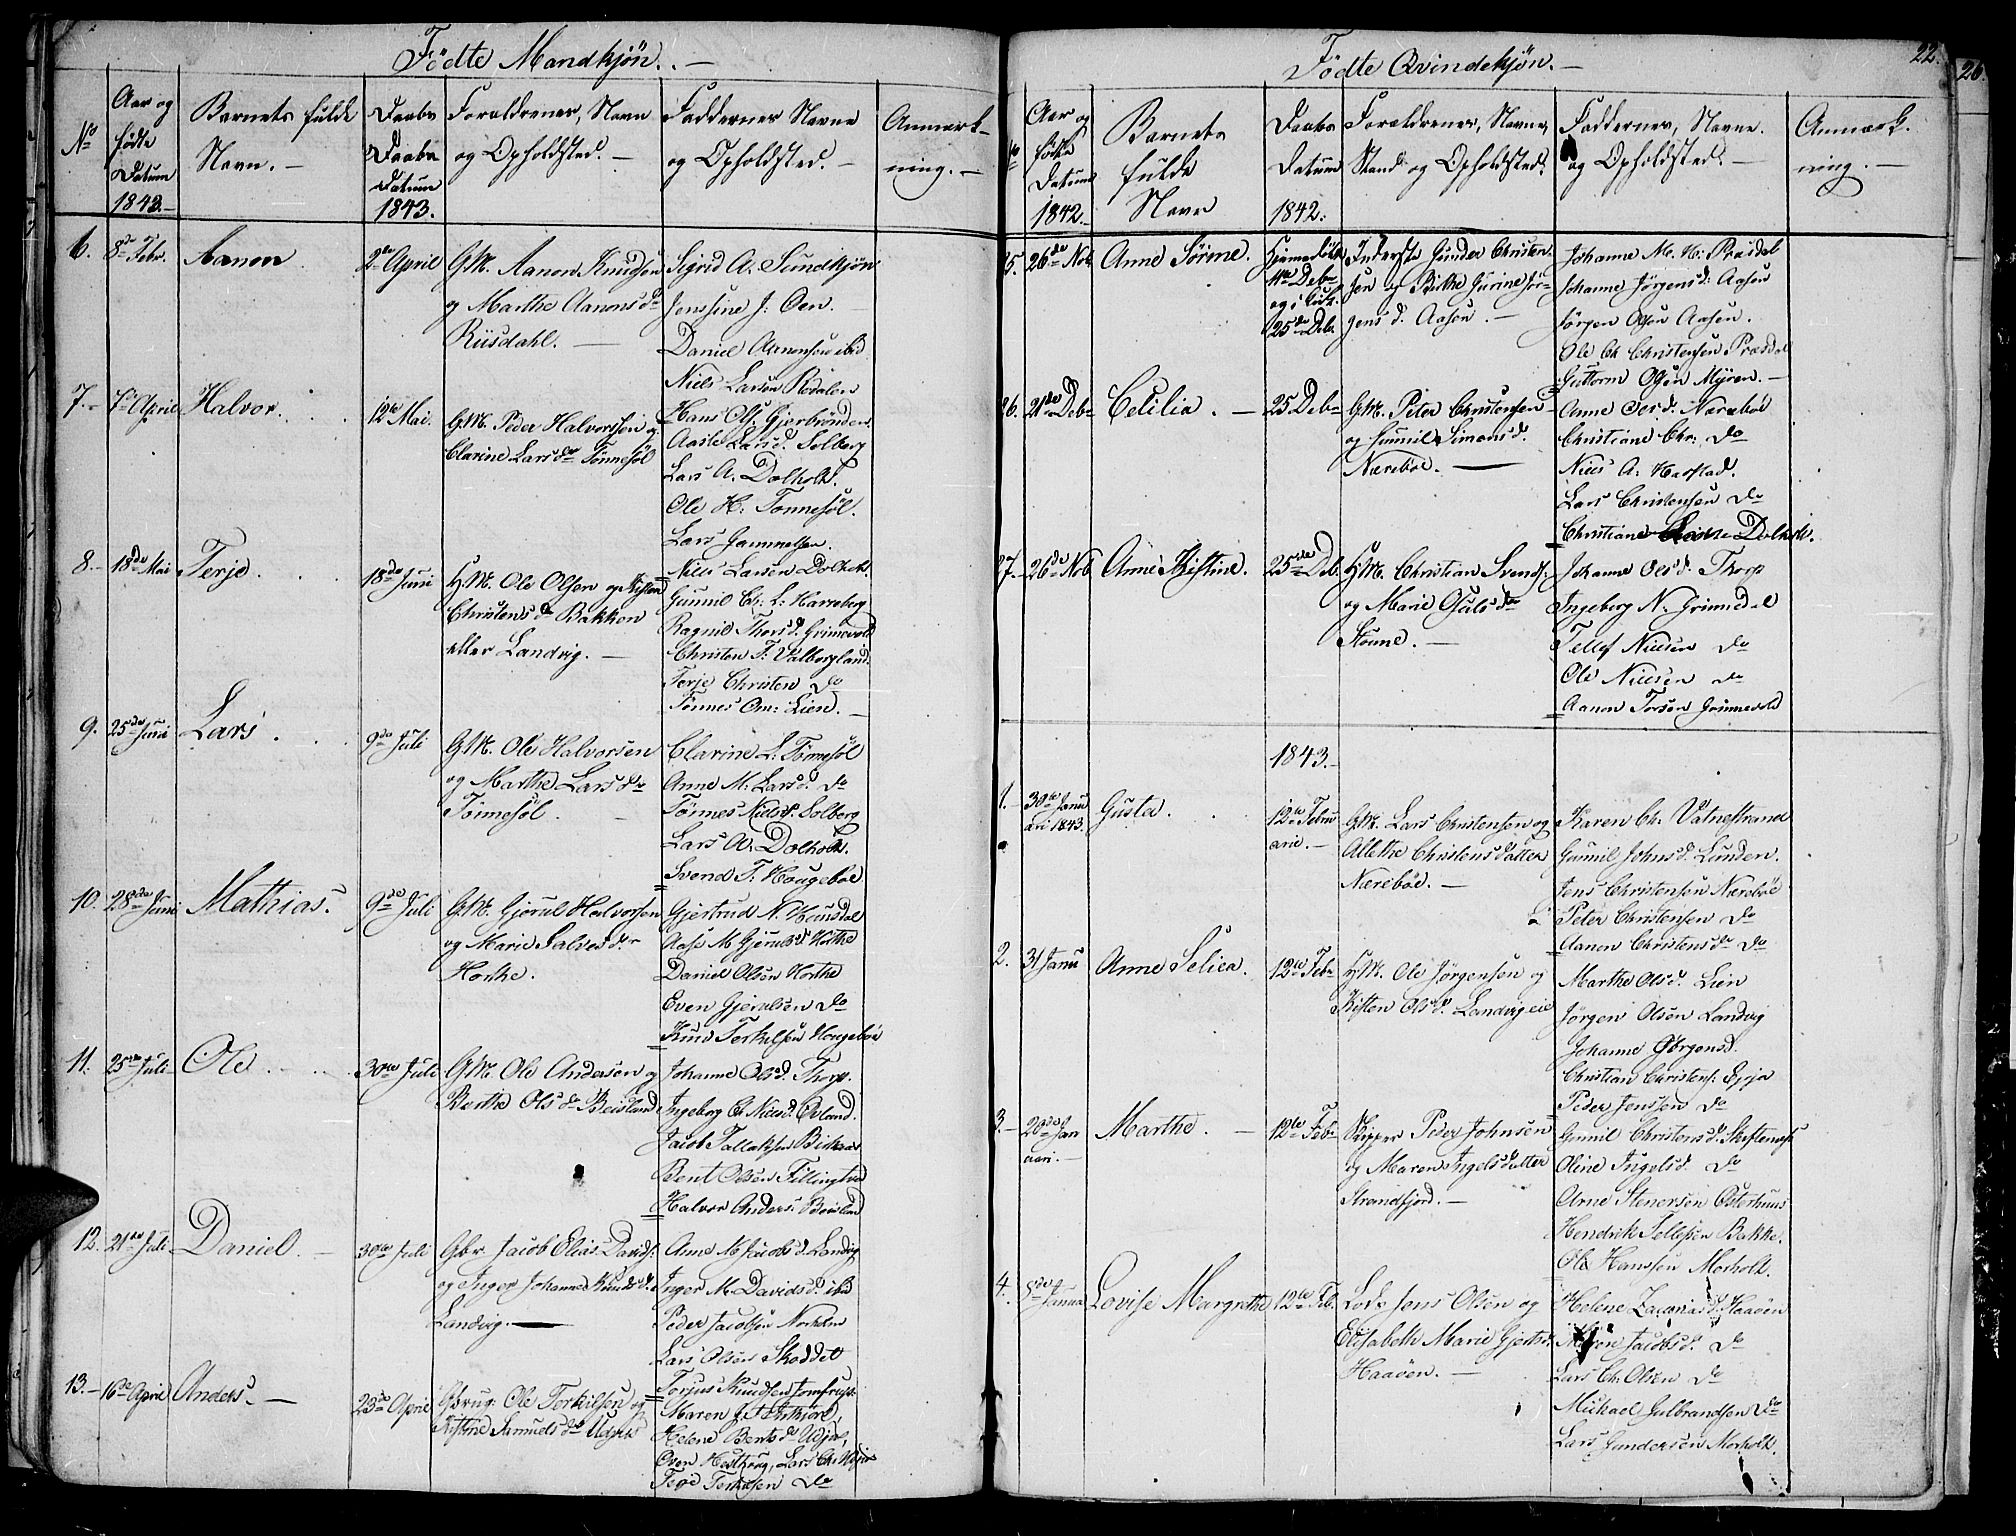 Födte Mandkjön. —
No
Aar og
födte
Datum
1843. —
Barnets fulde
Navn. —
Daabs
Datum
1843.
Forældrenes, Navn
og Opholdsted. —
Faddernes Navne
og Opholdsted. —
Anmærk-
ning. —
6. 8de Febr. Aanon 2den April
G.M. Aanon Knudsen
og Marthe Aanonsdr
Riisdahl. —
Sigrid A. Sundkjön
Jenssine J: Oen. —
Daniel Aanonsen ibid
Niels Larsen Rosalen
7. — 7de April Halvor. 12te Mai.
G.M. Peder Halvorssen og
Clarine Larsdr Tönnesöl
Hans Ols. Gjerbrönden
Aaste Larsd. Solberg
Lars A. Dolholt.
Ole H: Tonnesöl.
Lars Gammelsen.
8. — 18de Mai Terje. 18de Juni
H.M. Ole Olsen og Kisten
Christensdr Bakken
eller Landvig. —
Niels Larsen Dolholt.
Gunnil Ch: L: Harreberg
Ragnild Thorsd. Grimevold
Christen T: Valborgland
Terje Christen do
Tönnes Om: Lien. —
9. 25de Juni Lars. 9de Juli
G.M. Ole Halvorsen
og Marthe Larsdr
Tönnesöl. —
Clarine L: Tönnesöl
Anne M: Larsd. do
Tönnes Niels. Solberg
Lars A. Dolholt.
Svend T. Hougeböe
10. 28de Juni Mathias. 9de Juli
G.M. Gjerul Halvorsen
og Marie Salvesdr
Horthe.
Gjertrud N. Hunsdal
Aase M Gjerulsd Horthe
Daniel Olsen Horthe
Even Gjerulsen do
Knud Terkelsen Hougeböe
11. 25de Juli Ole 30te Juli
G.M. Ole Andersen og
Berthe Olsdr Beisland
Johanne Olsd. Thorp.
Ingeborg Ch Nielsd. Öeland.
Jacob Tallaksen Birkenes
Bent Olsen Fillingtvd
Halvor Anders. Beisland
12. 21de Juli Daniel. — 30te Juli
Gbr. Jacob Elias Davids.
og Inger Johanne Knudsd.
Landvig. —
Anne M Jacobsd Landvig
Inger M. Davidsd. ibid
Peder Jacobsen Norholm
Lars Olsen Skoddet
Torjus Knudsen
13. — 16de April Anders. — 23de April
Gbrug: Ole Terkilsen og
Kistine Samuelsdr Udjus
Maren
Helene Bentsdr Udjus,
Oven Hestkrog, Lars Ch. Udjus
Terje Terkilsen do
Födte Qvindekjön. —
22.
26
Aar og
födte
Datum
1842. —
Barnets
fulde
Navn
Daabs
Datum
1842.
Forældrenes, Navne,
Stand og Opholdsted.
Faddernes, Navne.
og Opholdsted. —
Anmærk.
ning. —
25. 26de Nov Anne Sörine.
Hjemmedöbt
4de Debr
og i Kirk.
25de Deb.
Inderste Gunder Christen-
sen og Birthe Gurine Jör-
gensd. Aasen. —
Johanne M. N: Præsdal
Johanne Jörgensd. Aasen
Jörgen Olsen Aasen.
Ole Ch Christensen Præsdal
Guttorm Olsen Myren. —
26. 21de Debr Celilia. — 25 Debr
G.M. Peter Christensen
og Gunnil Simonsd.
Næreböe. —
Anne Olsd. Næreböe
Christiane Chr: do
Niels A. Harstad.
Lars Christensen do
Christiane Dolholt.
27. 26de Nov Anne Kistine. 25de Deb.
H.M. Christian Svends.
og Marie Osulsdr
Stömne. —
Johanne Olsd. Thorp
Ingeborg N. Grimedal
Tellef Nielsen do
Ole Nielsen do
Aanon Torsen Grimevold
1843. —
1. — 30te Janu
ari 1843. Gusta. 12te Febru
arii. —
G.M. Lars Christensen og
Allethe Christensdatter
Næreböe. —
Karen Ch. Vatnestrand
Gunnil Johnsd. Lunden.
Jens Christensen Næreböe
Peter Christensen do
Aanon Christensdr do
2. 31 Janu Anne Selica. 12te Febr
H.M. Ole Jörgensen og
Kisten Olsd. Landvig eie
Marthe Olsd. Lien
Jörgen Olsen Landvig
Johanne Jörgensd.
Christian Christens. Egeja
Peder Jenssen do
3. — 28de Jan
uari. — Marthe. — 12te Febr
Skipper Peder Johnsen
og Maren Ingelsdatter
Strandfjord. —
Gunnil Christensd. Skiftenes
Oline Ingelsd. do
Arne Stenersen Österhuus
Hendrik Tellefsen Bakke.
Ole Hanssen Morholt.
4. 5de Janua Lovise Margrethe 12te Feb.
Lods Jens Olsen og
Elisabeth Marie Gjertsd.
Haaöen. —
Helene Zacariasd. Haaöen
Jacobsd. do
Lars Ch. Olsen do
Michael Gulbrandsen do
Lars Gundersen Morholt.